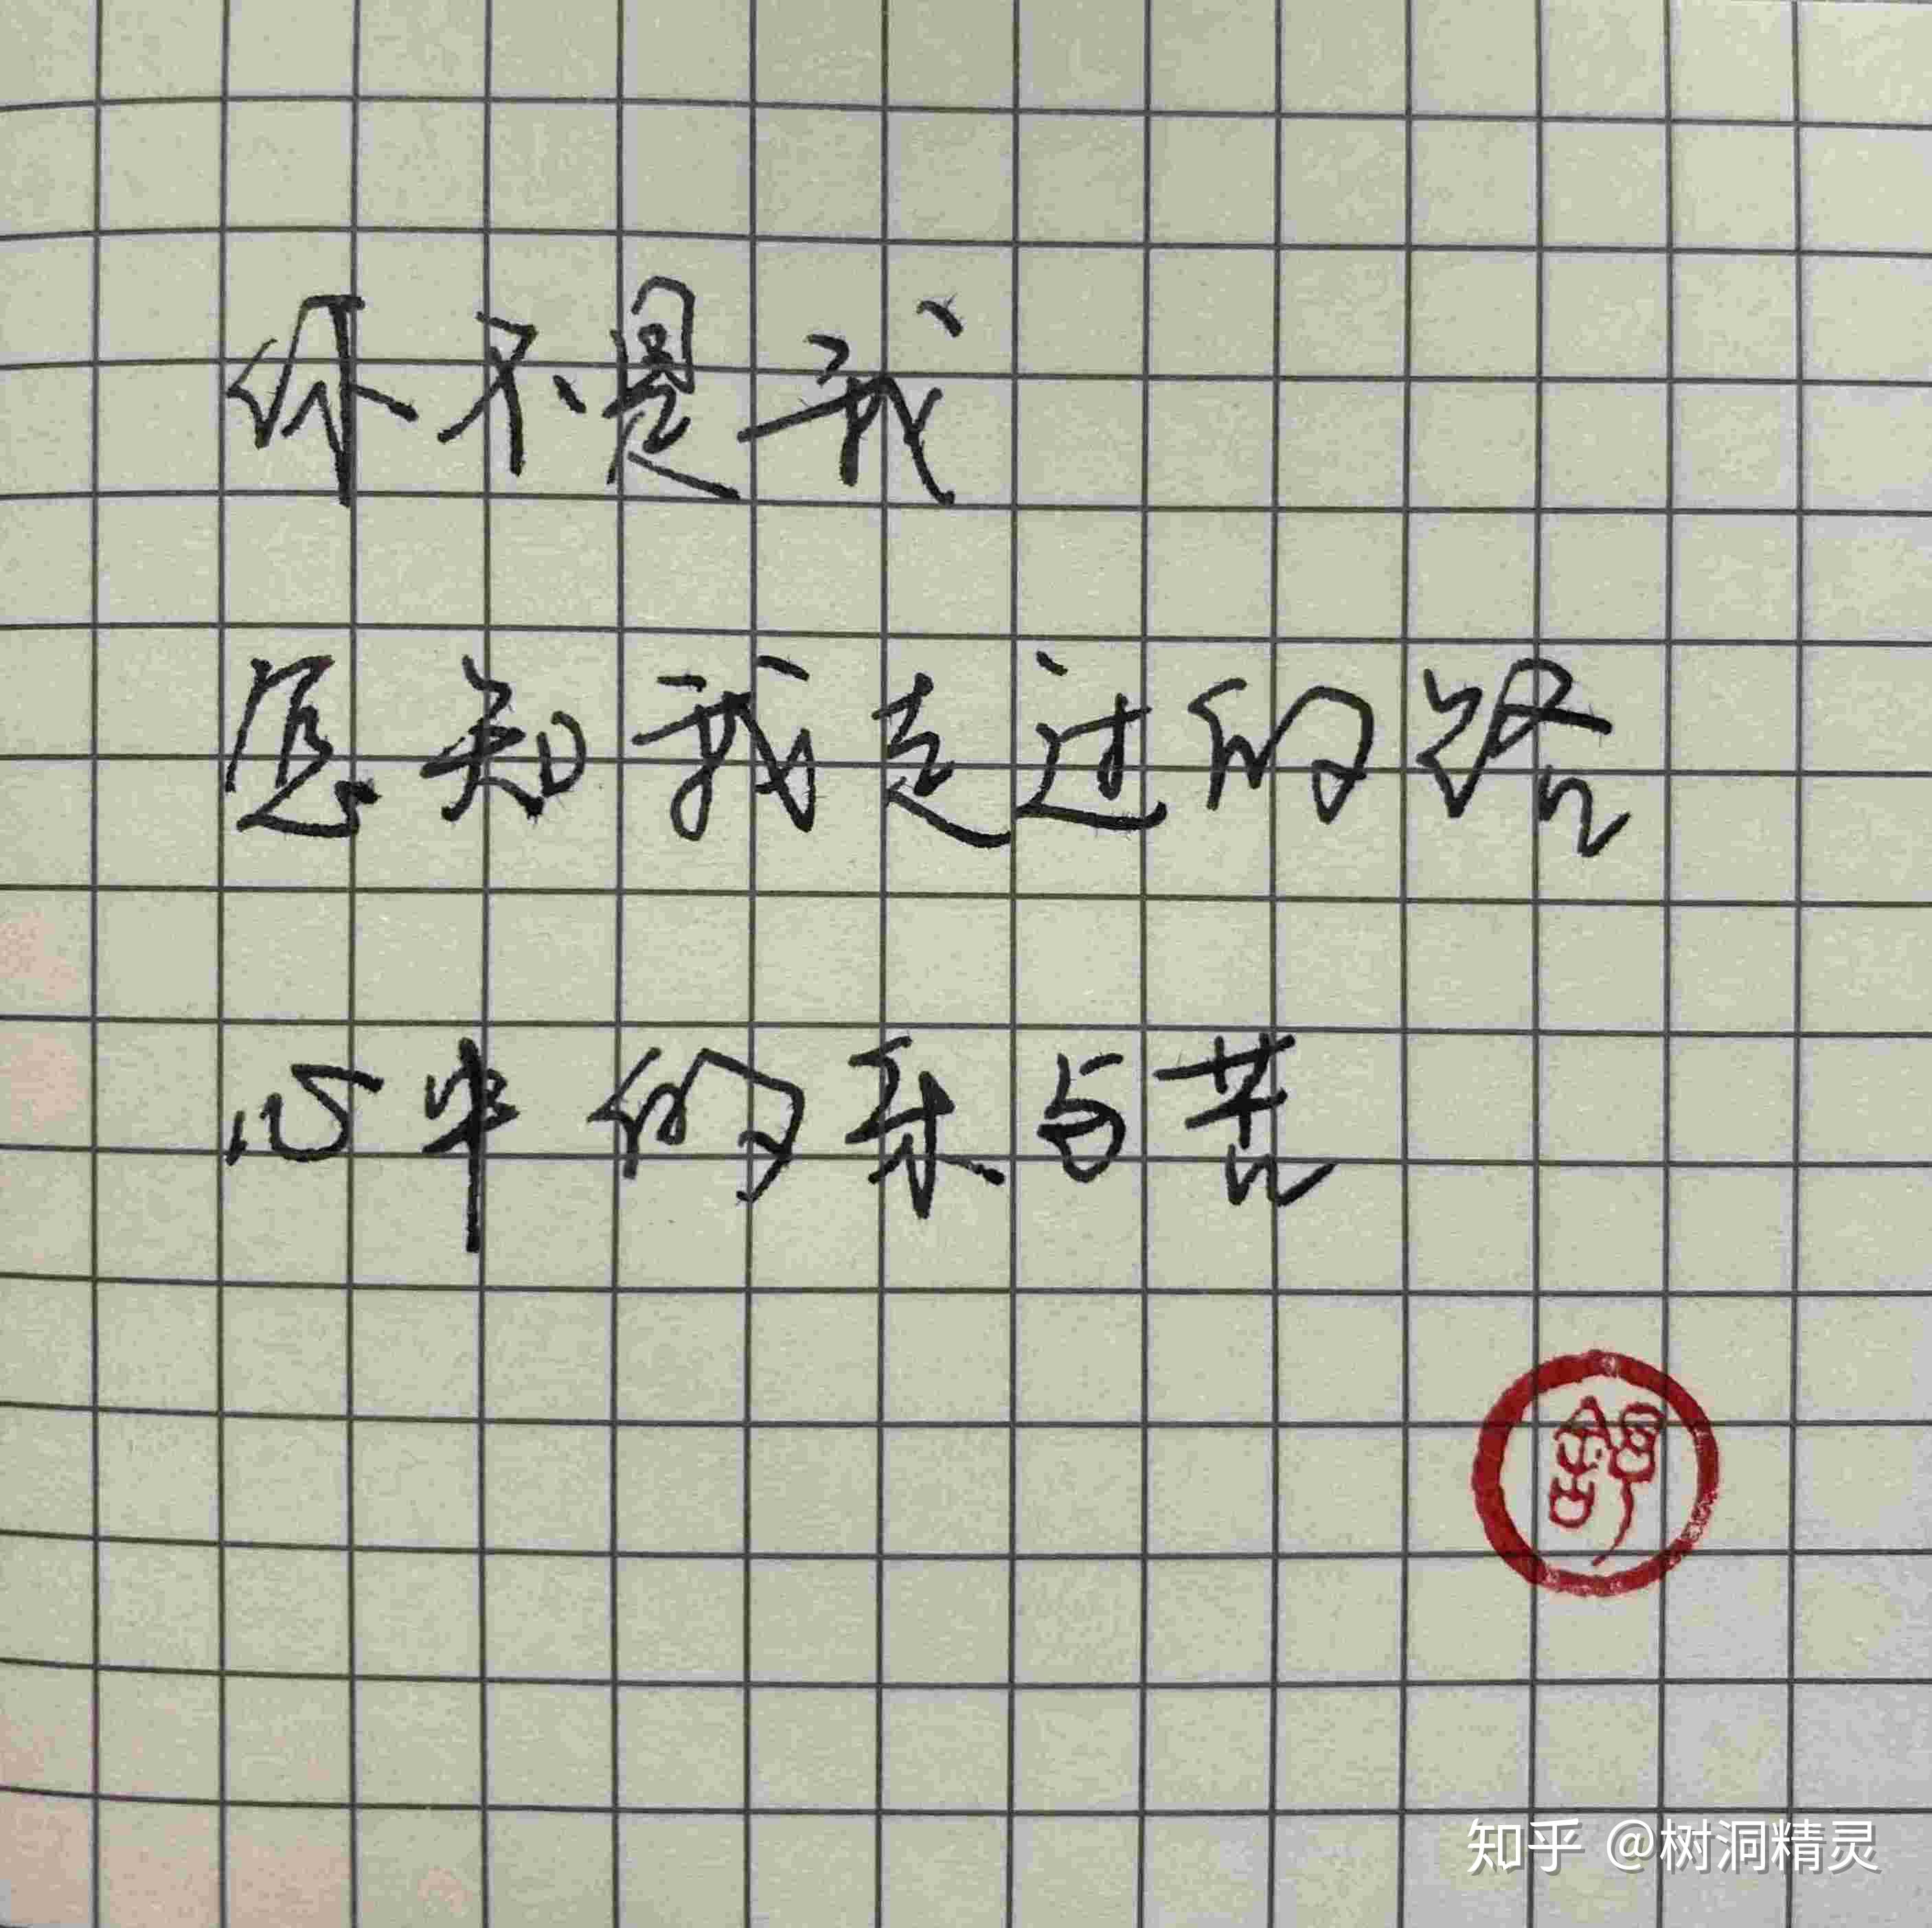 你不是我
怎知我走过的路
心中的乐与苦
舒
知乎 @树洞精灵